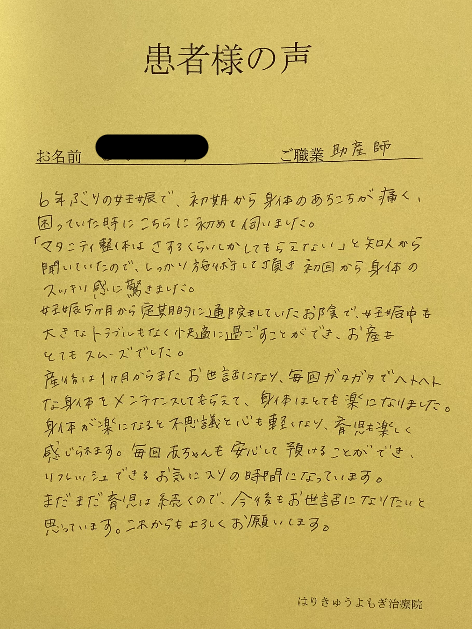 患者様の声
お名前 ご職業 助産師
6年ぶりの妊娠で、初期から身体のあちこちが痛く、
困っていた時にこちらに初めて伺いました。
「マタニティ整体はさするくらいしかしてもらえない」と知人から
聞いていたので、しっかり施術して頂き初回から身体の
スッキリ感に驚きました。
妊娠5ヶ月から定期的に通院をしていたお陰で、妊娠中も
大きなトラブルもなく快適に過ごすことができ、お産も
とてもスムーズでした。
産後は1ヶ月からまたお世話になり、毎回ガタガタでヘトヘト
な身体をメンテナンスしてもらえて、身体はとても楽になりました。
身体が楽になると不思議と心も軽くなり、育児も楽しく
感じられます。毎回赤ちゃんも安心して預けることができ、
リフレッシュできるお気に入りの時間になっています。
まだまだ育児は続くので、今後もお世話になりたいと
思っています。これからもよろしくお願いします。
はりきゅうよもぎ治療院